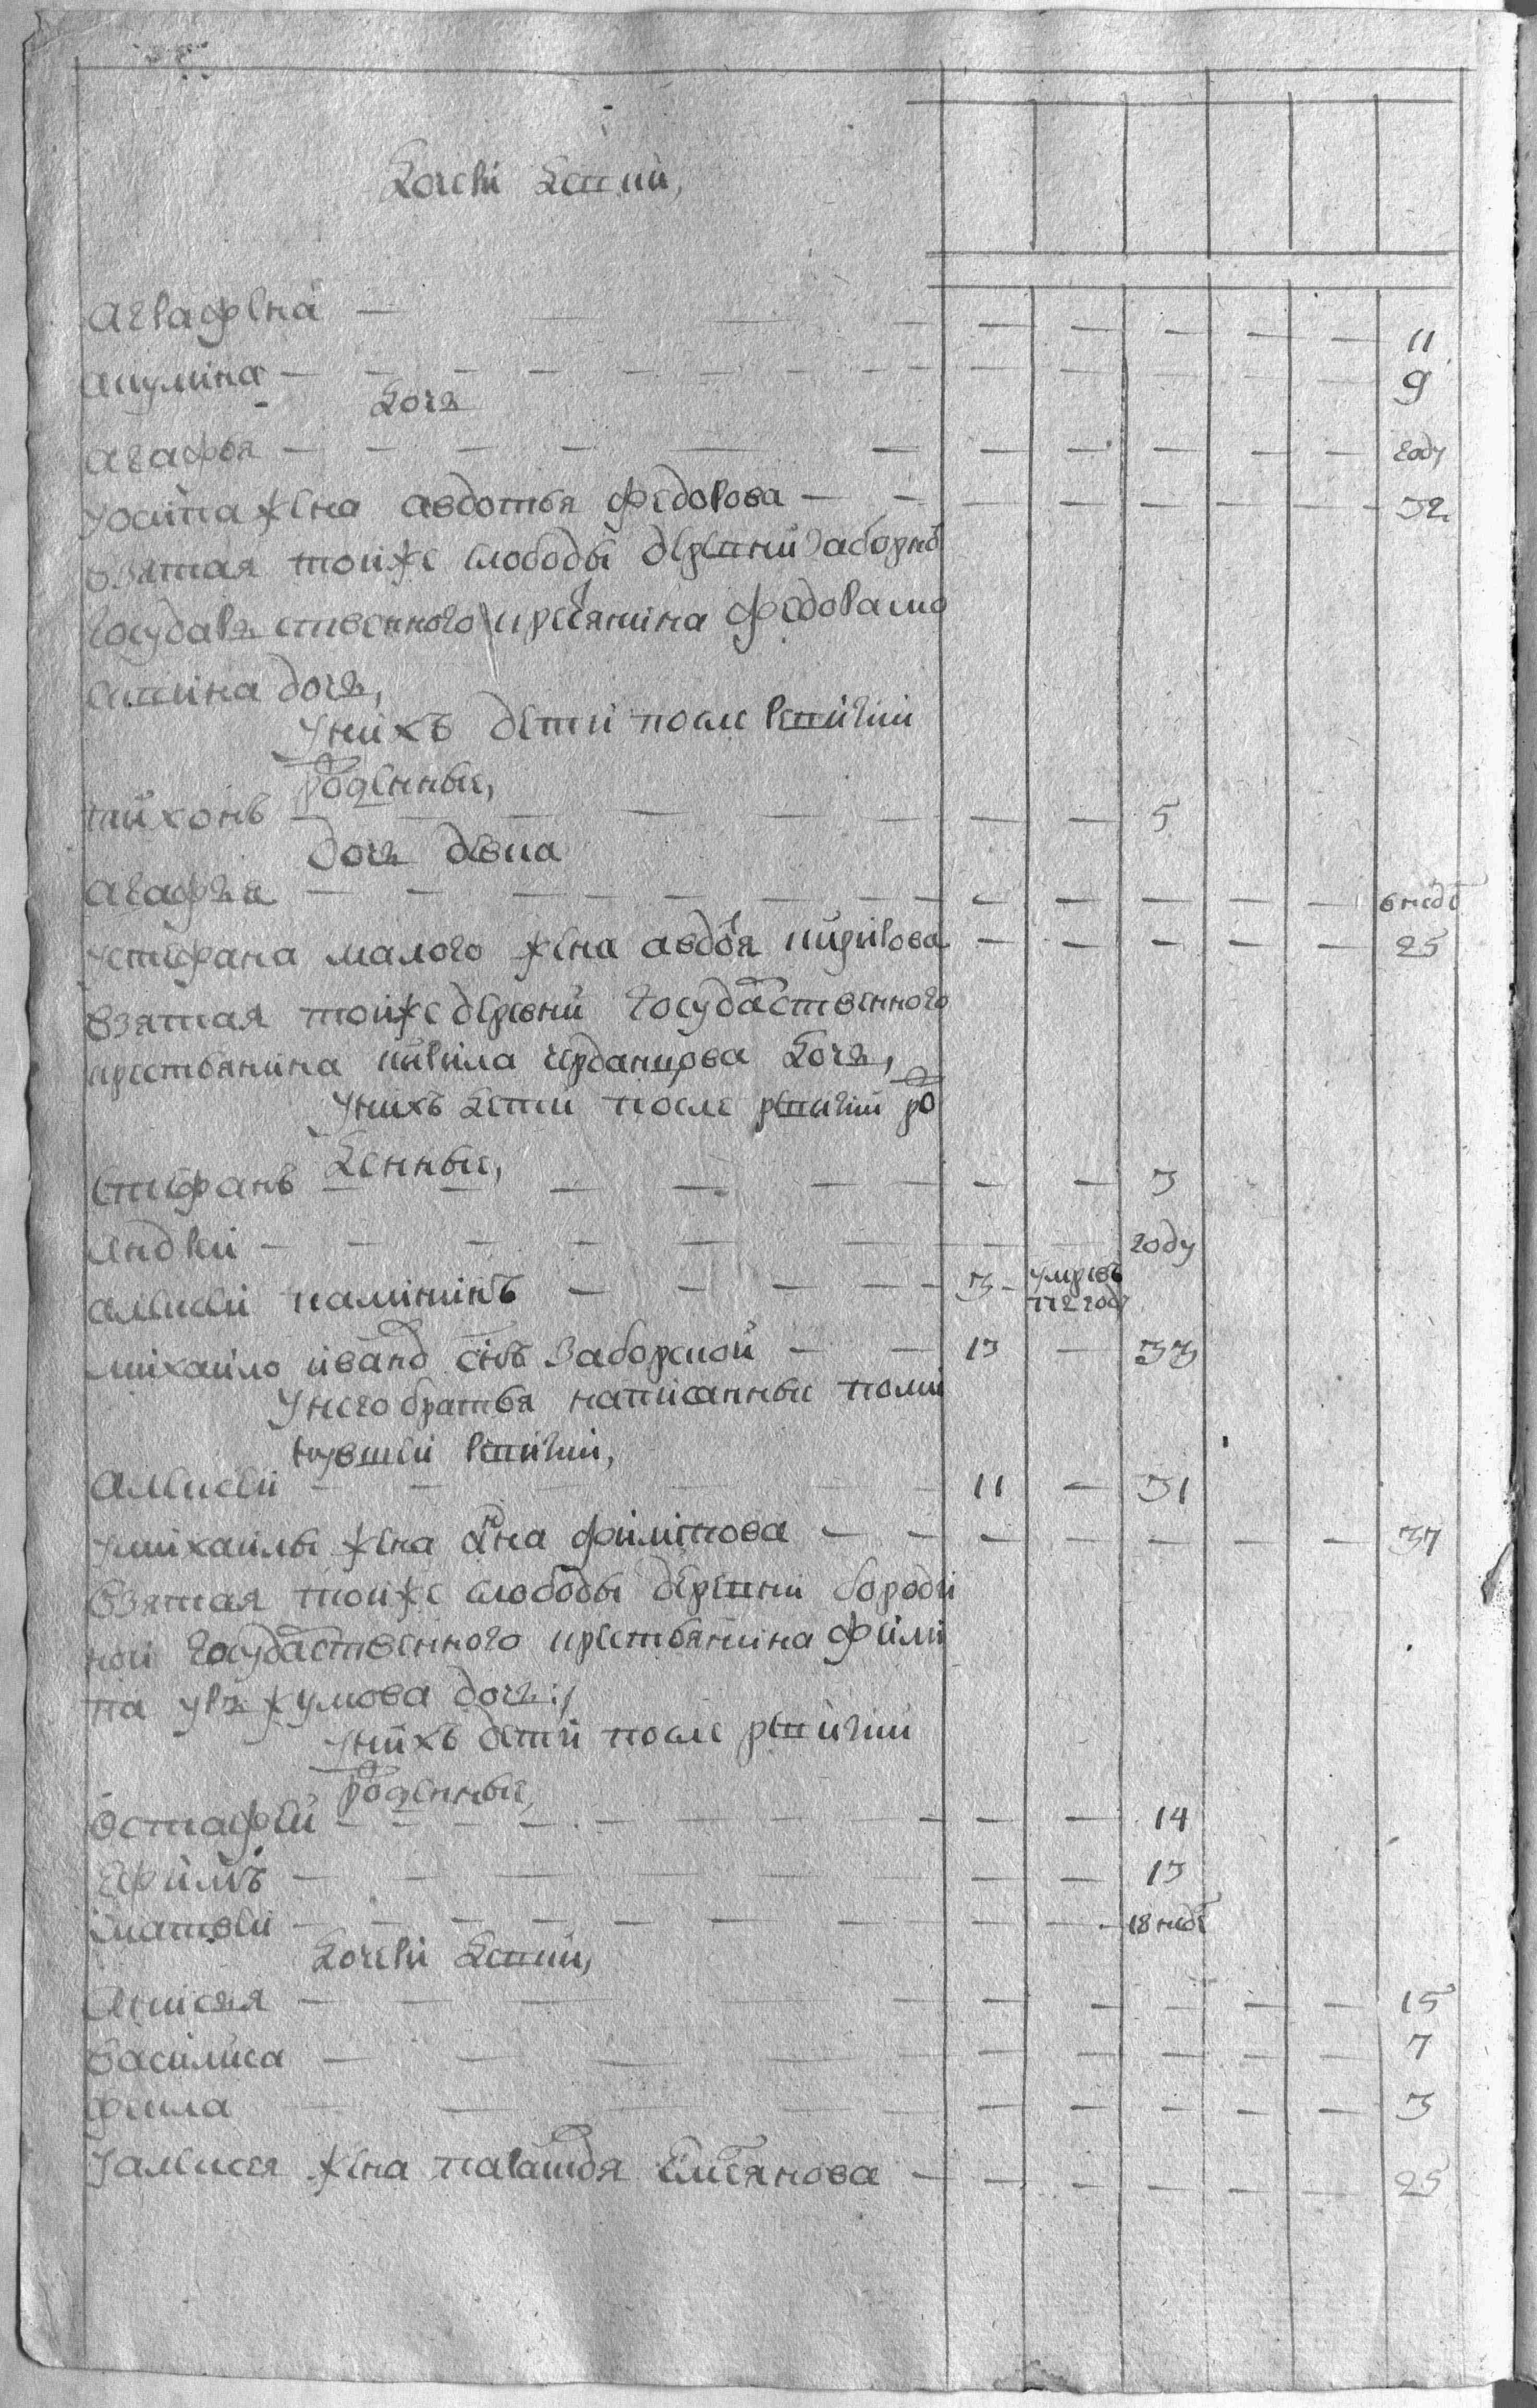 дочери девки,
аграфена — 11
акулина — 9
дочь
агафья — году
уосипа жена авдотья федорова — 32
взятая тойже слободы деревни заборнои
государственного крестьянина федора
дочь,
унихъ дети после ревизии
рожденные,
тихонъ — 5
дочь девка
агафья — 6 недѣ
устефана малого жена авдотья кирилова — 25
взятая тойже деревни государственного
крестьянина кирила черданцова дочь,
унихъ дети после ревизии ро
жденные,
стефанъ — 3
андрей — году
алексей калининъ — 3 — умревъ 772 году
михайло ивановъ снъ заборской — 13 — 33
унего братья написанные поми
нувшей ревизии,
алексей — 11 — 31
умихаилы жена анна филипова — 37
взятая тойже слободы деревни бороди
ной государственного крестьянина фили
па уржумова дочь,
унихъ дети после ревизии
рожденные,
остафей — 14
ефимъ — 13
матвей — 18 недѣ
дочери девки,
анисья — 15
василиса — 7
фекла — 3
уалексея жена палагея емельянова — 25